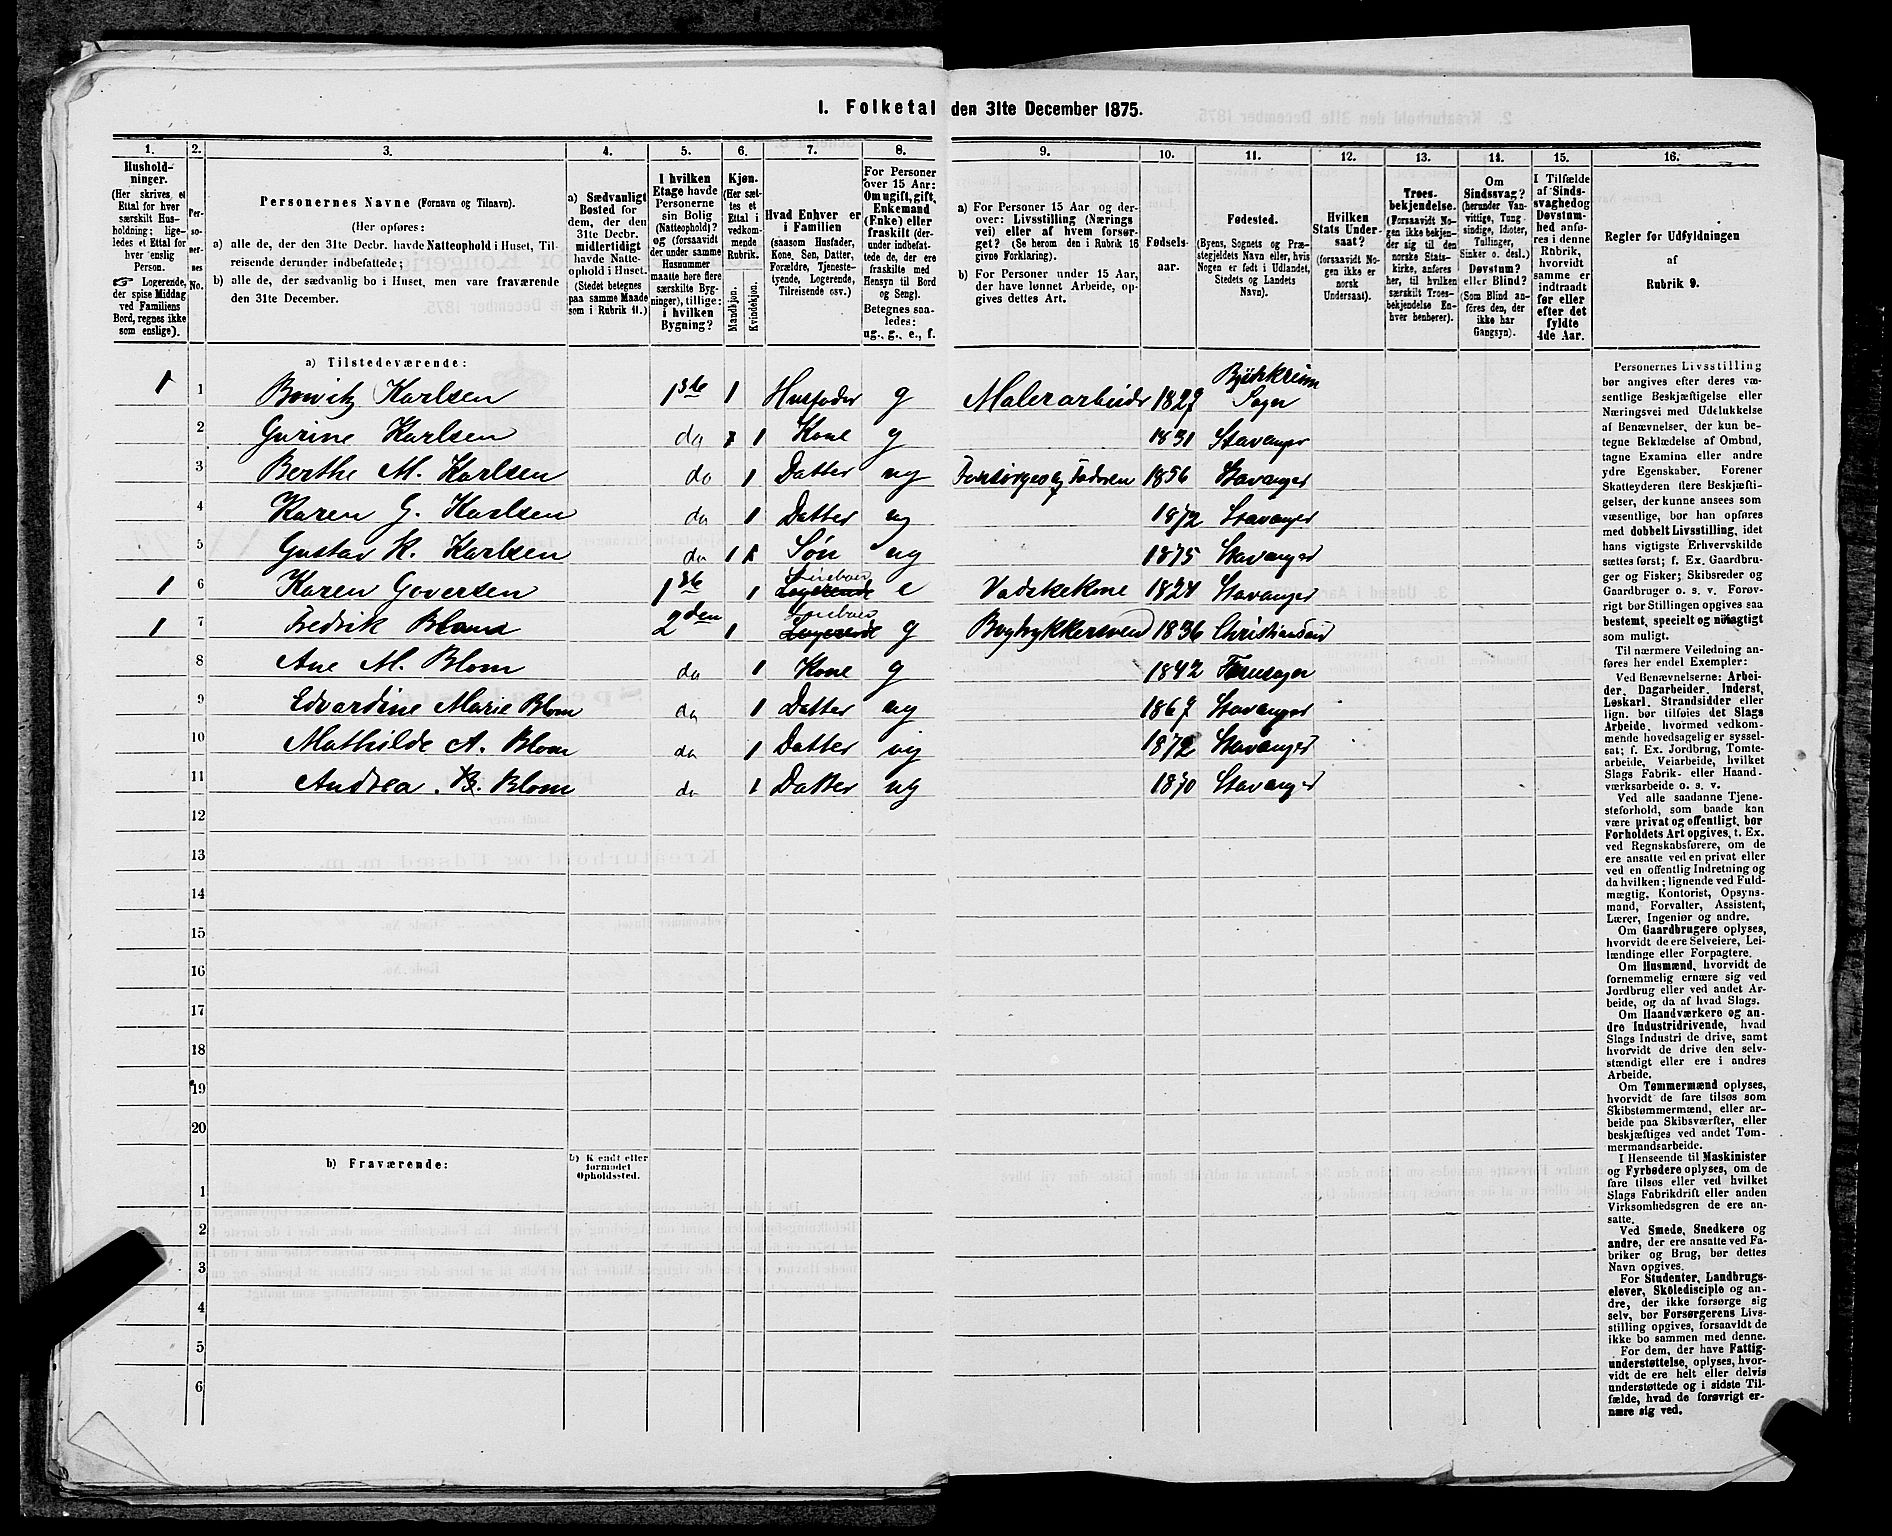 I. Folketal den 31te December 1875.
1. 2. 3. 4. 5. 6. 7. 8. 9. 10. 11. 12. 13. 14. 15. 16.
Hushold-
ninger.
(Her skrives et
Ettal for hver
særskilt Hus-
holdning; lige-
ledes et Ettal for
hver enslig
Person.
☞ Logerende,
der spise Middag
ved Familiens
Bord, regnes ikke
som enslige).
Per-
so-
ner-
nes
No.
Personernes Navne (Fornavn og Tilnavn).
(Her opføres:
a) alle de, der den 31te Decbr. havde Natteophold i Huset, Til-
reisende derunder indbefattede;
b) alle de, der sædvanlig bo i Huset, men vare fraværende
den 31te December.
a) Sædvanligt
Bosted for
dem, der den
31te Decbr.
midlertidigt
havde Natte-
ophold i Huset.
(Stedet betegnes
paa samme Maade
som i Rubrik 11.)
I hvilken
Etage havde
Personerne
sin Bolig
(Natteophold)?
og (forsaavidt
der under samme
Husnummer
maatte høre flere
særskilte Byg-
ninger), tillige:
i hvilken
Bygning?
Kjøn.
(Her sæt-
tes et
Ettal i
vedkom-
mende
Rubrik.
Mandkjøn.
Kvindekjøn.
Hvad Enhver er
i Familien
(saasom Husfader,
Kone, Søn, Datter,
Forældre, Tjeneste-
tyende, Logerende,
Tilreisende osv.)
For Personer
over 15 Aar:
Om ugift, gift,
Enkemand
(Enke) eller
fraskilt (der-
under indbefat-
tede de, der ere
fraskilte med
Hensyn til Bord
og Seng).
Betegnes saa-
ledes:
ug., g., e., f.
a) For Personer 15 Aar og der-
over: Livsstilling (Nærings
vei) eller af hvem forsør-
get? (Se herom den i Rubrik 16
givne Forklaring).
b) For Personer under 15 Aar,
der have lønnet Arbeide, op-
gives dettes Art.
Fødsels-
aar.
Fødested.
(Byens, Sognets og Præ-
stegjeldets Navn eller, hvis
Nogen er født i Udlandet,
Stedets og Landets
Navn).
Hvilken
Stats Under-
saat?
(forsaavidt No-
gen ikke er
norsk
Undersaat).
Troes-
bekjendelse.
(Forsaavidt No-
gen ikke bekjen-
der sig til den
norske Stats-
kirke, anføres
her, til hvilken
særskilt Troes-
bekjendelse En-
hver henhører).
Om
Sindssvag?
(herunder Van-
vittige, Tung
sindige, Idioter,
Tullinger,
Sinker o. desl.)
Døvstum?
eller Blind?
(Som Blind an-
føres den, der
ikke har
Gangsyn).
I Tilfælde
af Sinds-
svaghed og
Døvstum-
hed anfø-
res i denne
Rubrik,
hvorvidt
samme er
indtraadt
før eller
efter det
fyldte
4de Aar.
Regler for Udfyldningen
af
Rubrik 9.
a) Tilstedeværende:
1 1 Karlsen 1ste 1 Husfader g Malerarbeider 1827 Sogn
2 Gurine Karlsen do 1 Kone g 1831 Stavanger
3 Berthe M. Karlsen do 1 Datter ug Forsørges af Faderen 1856 Stavanger
4 Karen G. Karlsen do 1 Datter ug 1872 Stavanger
5 Gustav K. Karlsen do 1 Søn ug 1875 Stavanger
1 6 Karen Goversen 1ste 1 Logerende e Vadskekone 1824 Stavanger
1 7 Fredrik Blom 2den 1 Logerende g Bogtrykkersvend 1836 Christiansand
8 Ane M. Blom do 1 Kone g 1842
9 Edvardine Marie Blom do 1 Datter ug 1867 Stavanger
10 Mathilde A. Blom do 1 Datter ug 1872 Stavanger
11 Andrea B. Blom do 1 Datter ug 1870 Stavanger
12
13
14
15
16
17
18
19
20
b) Fraværende:
b) Kjendt eller
formodet
Opholdssted.
1
2
3
4
5
6
Personernes Livsstilling
bør angives efter deres væ-
sentlige Beskjæftigelse eller
Næringsvei med Udelukkelse
af Benævnelser, der kun be-
tegne Beklædelse af Ombud,
tagne Examina eller andre
ydre Egenskaber. Forener
Skatteyderen flere Beskjæfti-
gelser, der kunne ansees som
væsentlige, bør han opføres
med dobbelt Livsstilling, idet
hans vigtigste Erhvervskilde
sættes først; f. Ex. Gaardbru-
ger og Fisker; Skibsreder og
Gaardbruger o. s. v. Forøv-
rigt bør Stillingen opgives saa
bestemt, specielt og nøiagtigt
som muligt.
Til nærmere Veiledning an-
føres her endel Exempler:
Ved Benævnelserne: Arbei-
der, Dagarbeider, Inderst,
Løskarl, Strandsidder eller
lign. bør tilføies det Slags
Arbeide, hvormed vedkom-
mende hovedsagelig er syssel-
sat; f. Ex. Jordbrug, Tomte-
arbeide, Veiarbeide, hvilket
Slags Fabrik- eller Haand-
værksarbeide o. s. v.
Ved alle saadanne Tjene-
steforhold, som baade kan
være privat og offentligt, bør
Forholdets Art opgives, t. Ex.
ved Regnskabsførere, om de
ere ansatte ved en privat eller
ved en offentlig Indretning og
da hvilken; lignende ved Fuld-
mægtig, Kontorist, Opsyns-
mand, Forvalter, Assistent,
Lærer, Ingeniør og andre.
Om Gaardbrugere oplyses,
hvorvidt de ere Selveiere, Lei-
lændinge eller Forpagtere.
Om Husmænd, hvorvidt de
fornemmelig ernære sig ved
Jordbrug eller ved andet Ar-
beide, og da af hvad Slags.
Om Haandværkere og an-
dre Industridrivende, hvad
Slags Industri de drive, samt
hvorvidt de drive den selv-
stændigt eller ere i andres
Arbeide.
Om Tømmermænd oplyses,
hvorvidt de fare tilsøs som
Skibstømmermænd, eller ar-
beide paa Skibsværfter, eller
beskjæftiges ved andet Tøm-
mermandsarbeide.
I Henseende til Maskinister
og Fyrbødere oplyses, om de
fare tilsøs eller ved hvilket
Slags Fabrikdrift eller anden
Virksomhedsgren de ere an-
satte.
Ved Smede, Snedkere og
andre, der ere ansatte ved Fa-
briker og Brug, bør dettes
Navn opgives.
For Studenter, Landbrugs-
elever, Skoledisciple og an-
dre, der ikke forsørge sig
selv, bør Forsørgerens Livs-
stilling opgives, forsaavidt de
ikke bo sammen med denne.
For dem, der have Fattig-
understøttelse, oplyses, hvor-
vidt de ere helt eller delvis
understøttede og i sidste Til-
fælde, hvad de forøvrigt er-
nære sig ved.